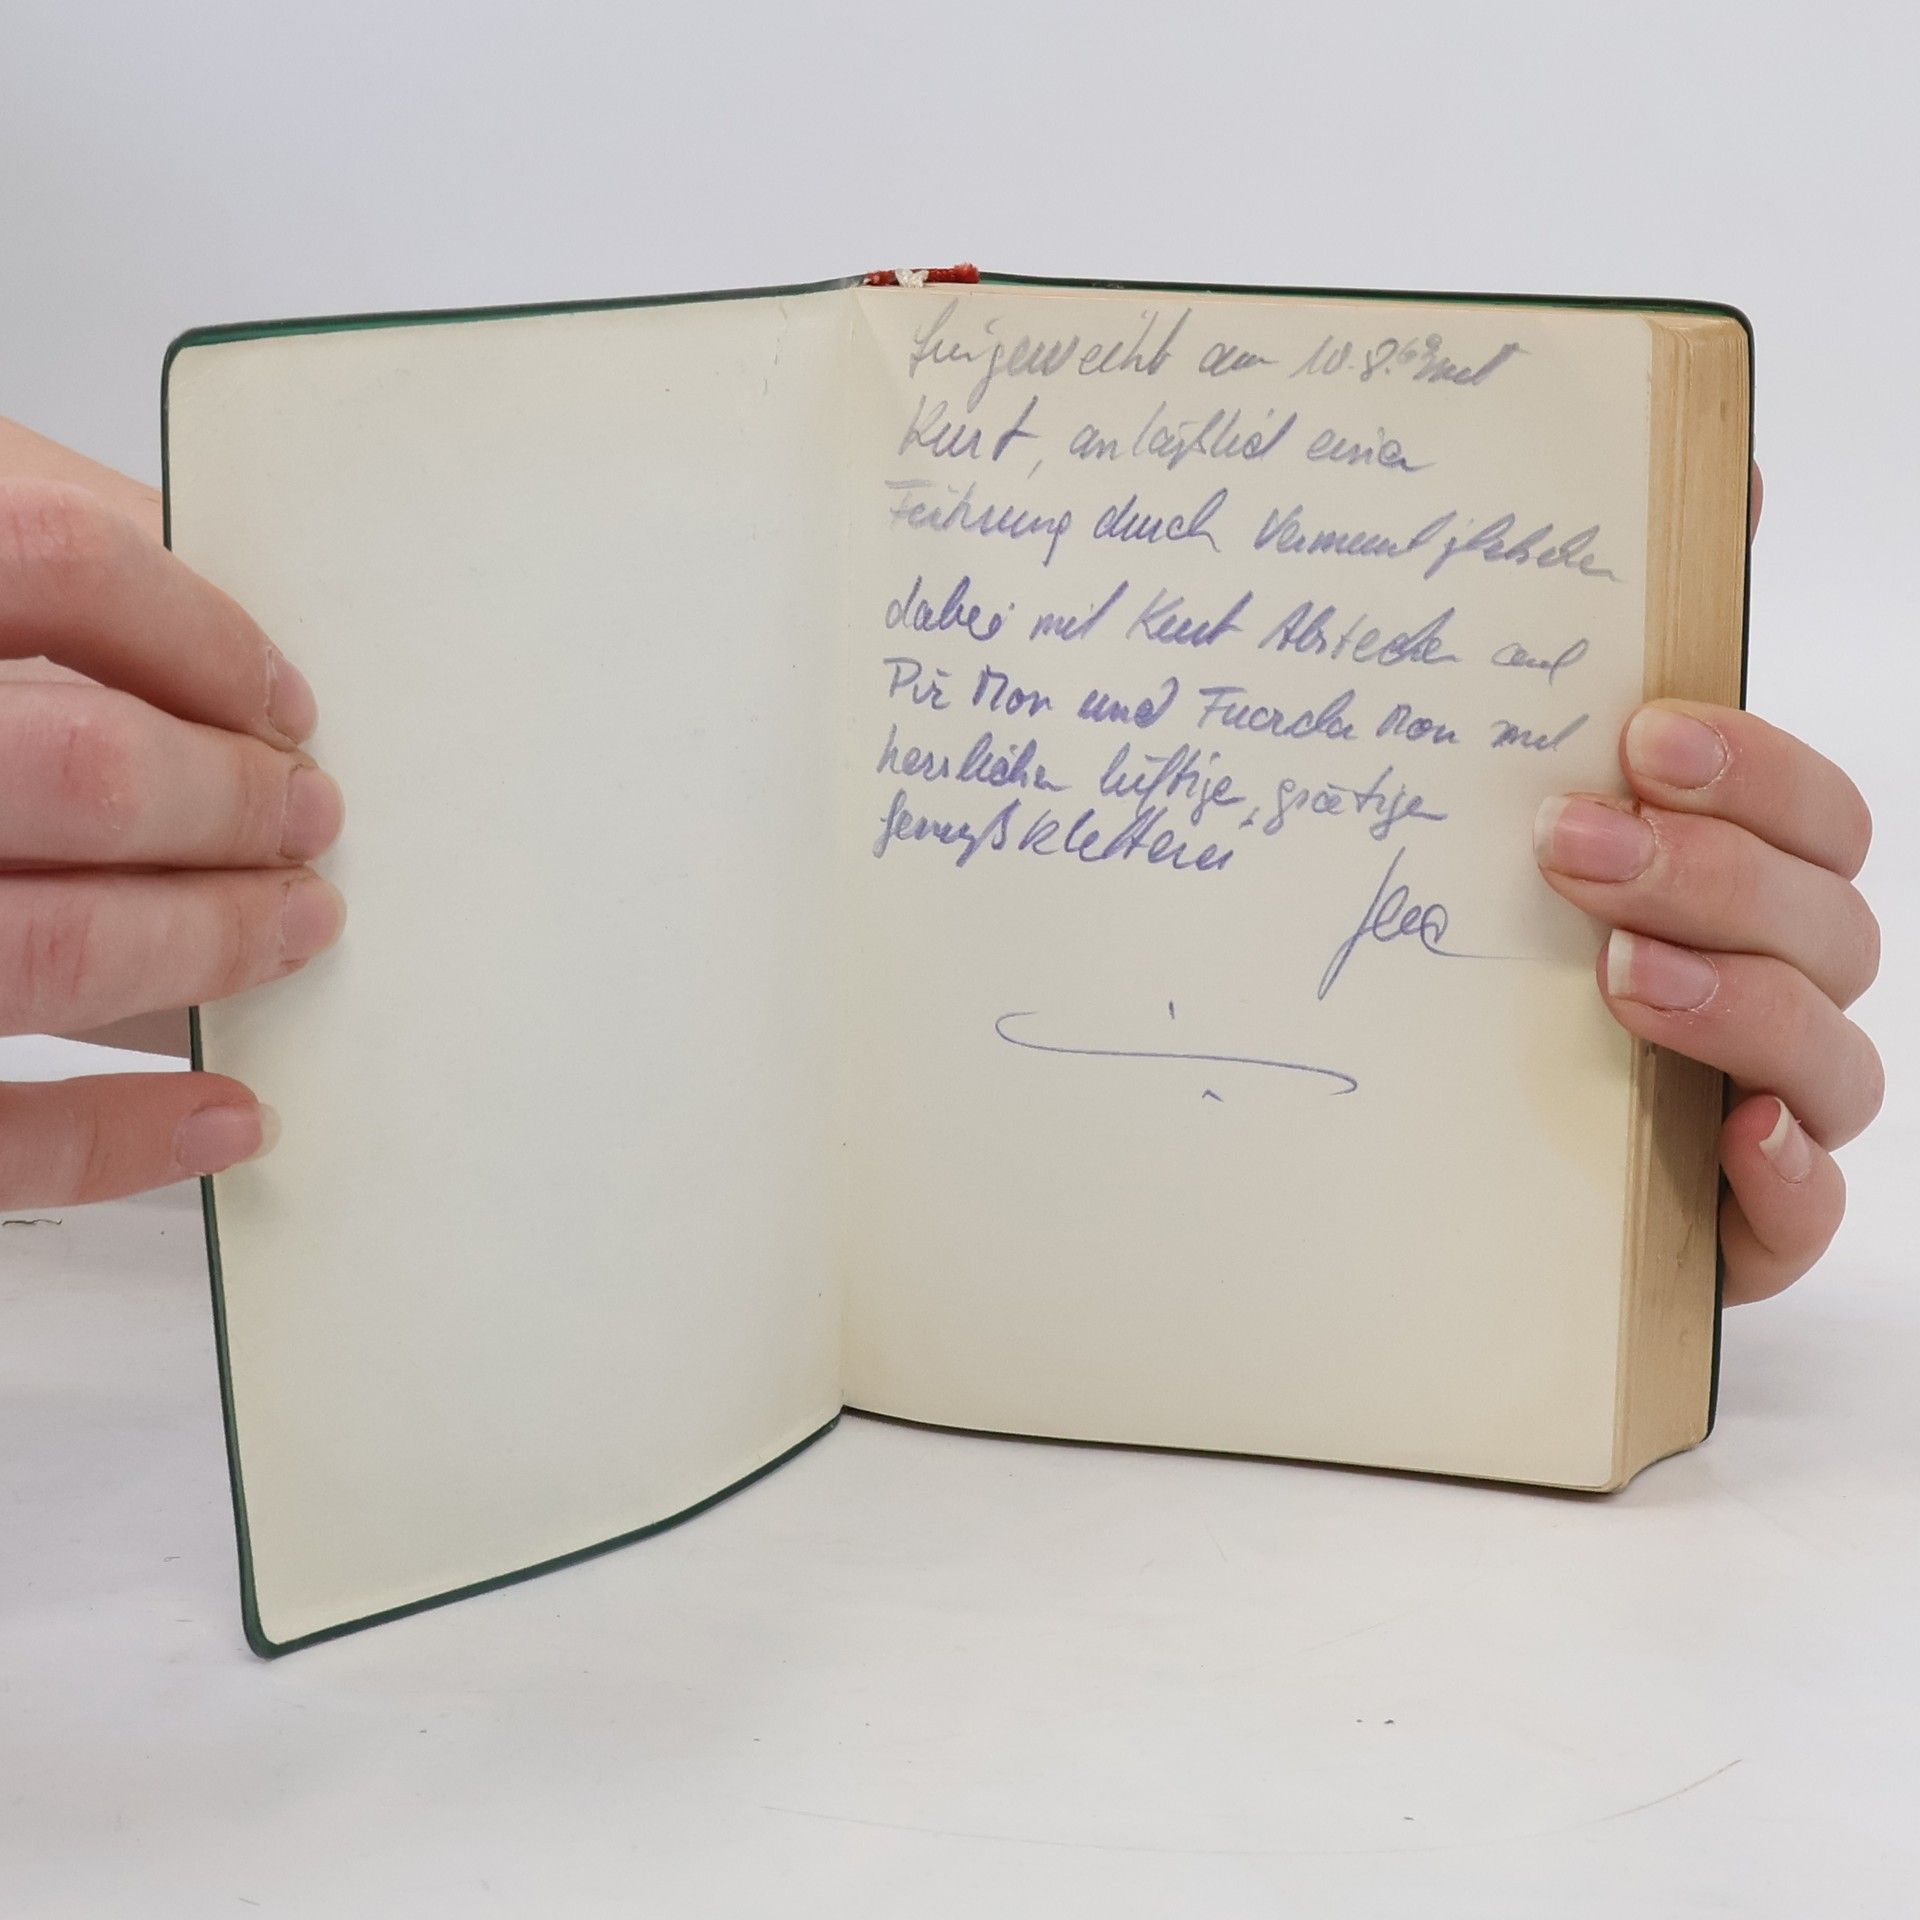 Eingeweiht am 10.8.69 mit
Kurt, anläßlich einer
Führung durch Vermunt gletscher
dabei mit Kurt Abstecher auf
Piz Mon und Fuorcla Mon mit
herrlicher luftige, grätiger
Genußkletterei